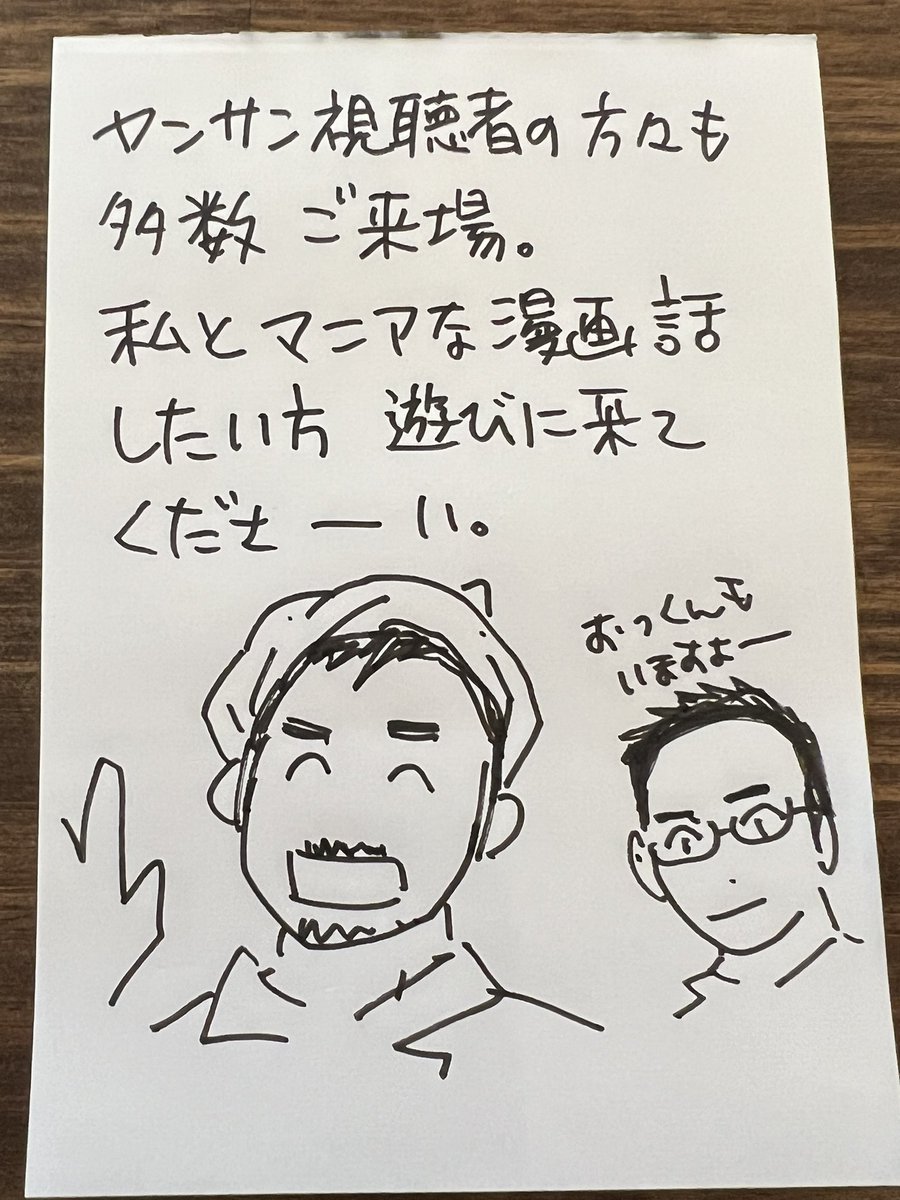 ヤンサン視聴者の方々も
多数 ご来場。
私とマニアな漫画話
したい方 遊びに来て
くださーい。
おっくんも
いますよー